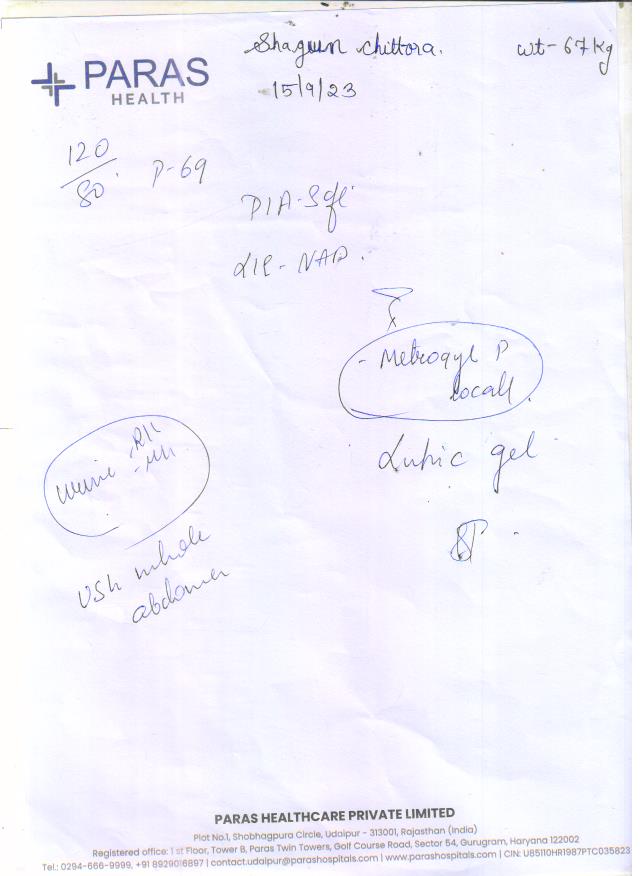 PARAS
HEALTH
Shagun Chittora.
wt - 67 kg
15/9/23
120
80
P-69
P/A - Soft
L/E - NAD.
- Metrogyl P
locall
Lubic gel
Urine - R/M
USG whole
abdomen
PARAS HEALTHCARE PRIVATE LIMITED
Plot No.1, Shobhagpura Circle, Udaipur - 313001, Rajasthan (India)
Registered office: 1st Floor, Tower B, Paras Twin Towers, Golf Course Road, Sector 54, Gurugram, Haryana 122002
Tel.: 0294-666-9999, +91 8929016897 | contact.udaipur@parashospitals.com | www.parashospitals.com | CIN: U85110HR1987PTC035823